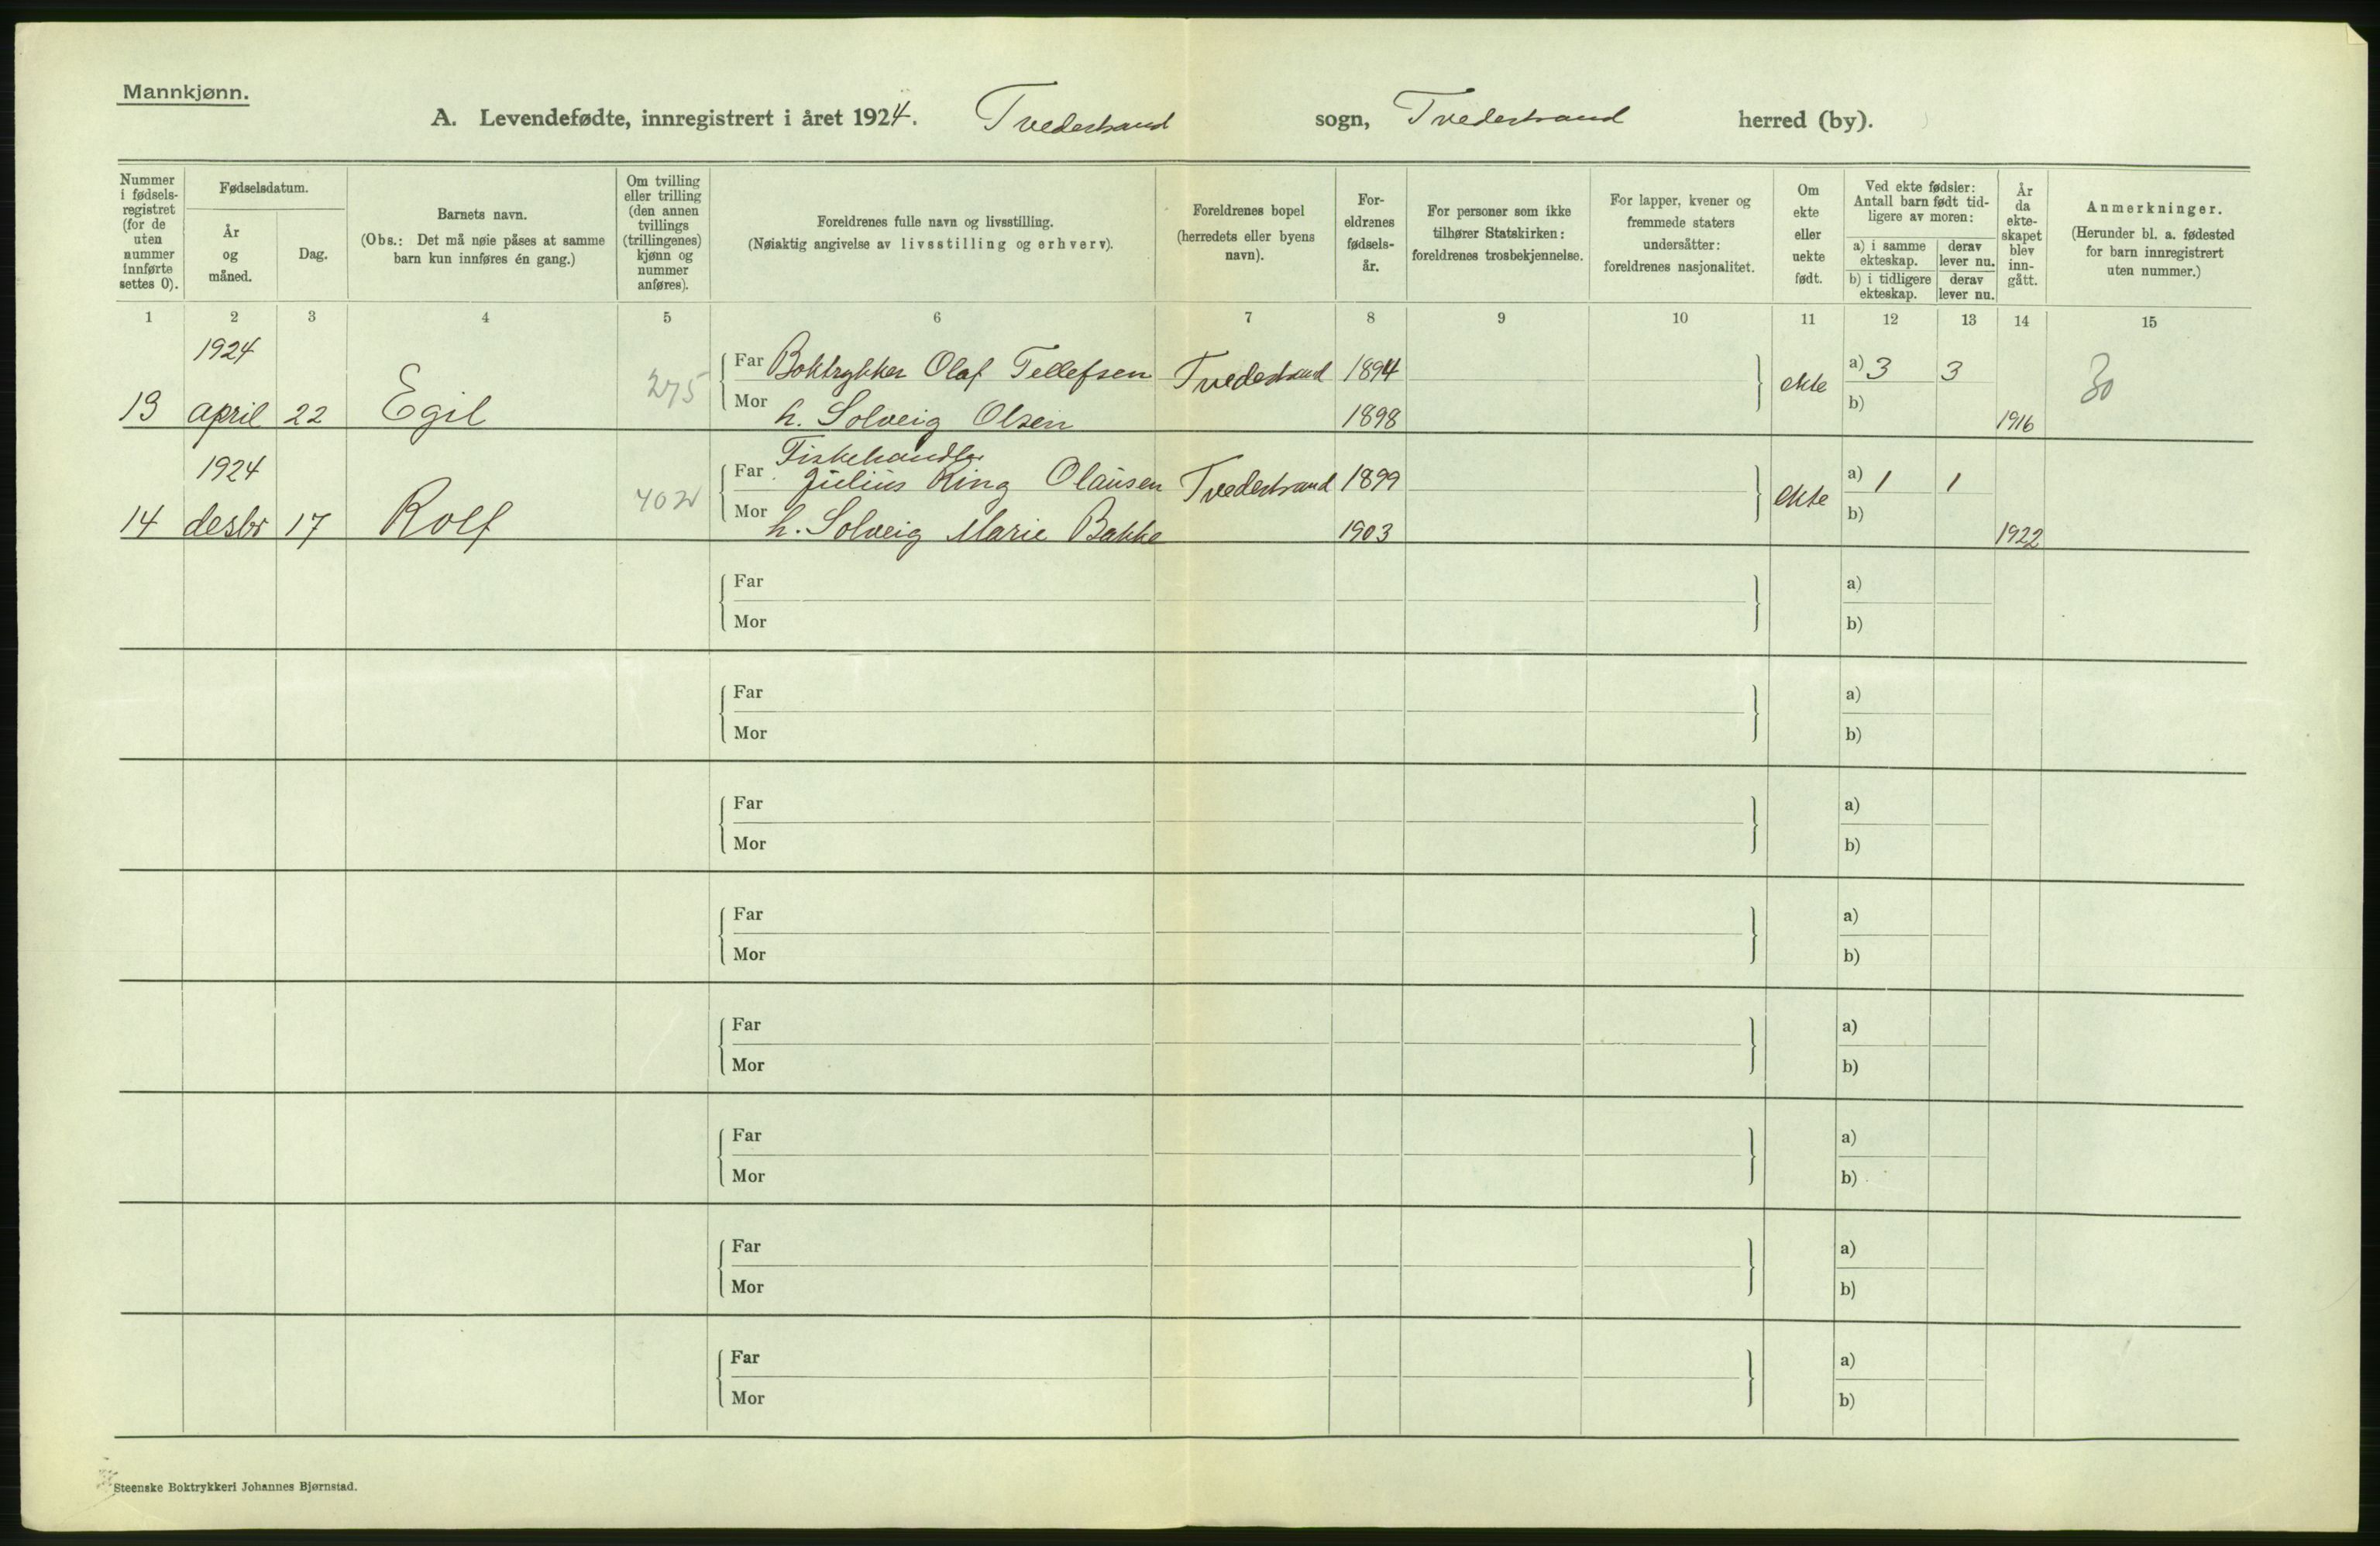 Mannkjønn.
A. Levendefødte, innregistrert i året 1924. Tvedestrand sogn, Tvedestrand herred (by).
Nummer i fødsels-registret (for de uten nummer innførte settes 0).
Fødselsdatum.
År og måned.
Dag.
Barnets navn.
(Obs.: Det må nøie påses at samme barn kun innføres én gang.)
Om tvilling eller trilling (den annen tvillings (trillingenes) kjønn og nummer anføres).
Foreldrenes fulle navn og livsstilling.
(Nøiaktig angivelse av livsstilling og erhverv).
Foreldrenes bopel (herredets eller byens navn).
For-eldrenes fødsels-år.
For personer som ikke tilhører Statskirken: foreldrenes trosbekjennelse.
For lapper, kvener og fremmede staters undersåtter: foreldrenes nasjonalitet.
Om ekte eller uekte født.
Ved ekte fødsler: Antall barn født tid-ligere av moren:
a) i samme ekteskap.
derav lever nu.
b) i tidligere ekteskap.
derav lever nu.
År da ekte-skapet blev inn-gått.
Anmerkninger.
(Herunder bl. a. fødested for barn innregistrert uten nummer.)
1 2 3 4 5 6 7 8 9 10 11 12 13 14 15
1924
275 Far Boktrykker Olaf Tellefsen Tvedestrand 1894 ekte a) 3 3 30
13 april 22 Egil Mor h. Solveig Olsen 1898 b) 1916
1924 Fiskehandler
402 Far Julius Ring Olausen Tvedestrand 1899 ekte a) 1 1
14 desbr 17 Rolf Mor h. Solveig Marie Bakke 1903 b) 1922
Far a)
Mor b)
Far a)
Mor b)
Far a)
Mor b)
Far a)
Mor b)
Far a)
Mor b)
Far a)
Mor b)
Far a)
Mor b)
Far a)
Mor b)
Steenske Boktrykkeri Johannes Bjørnstad.